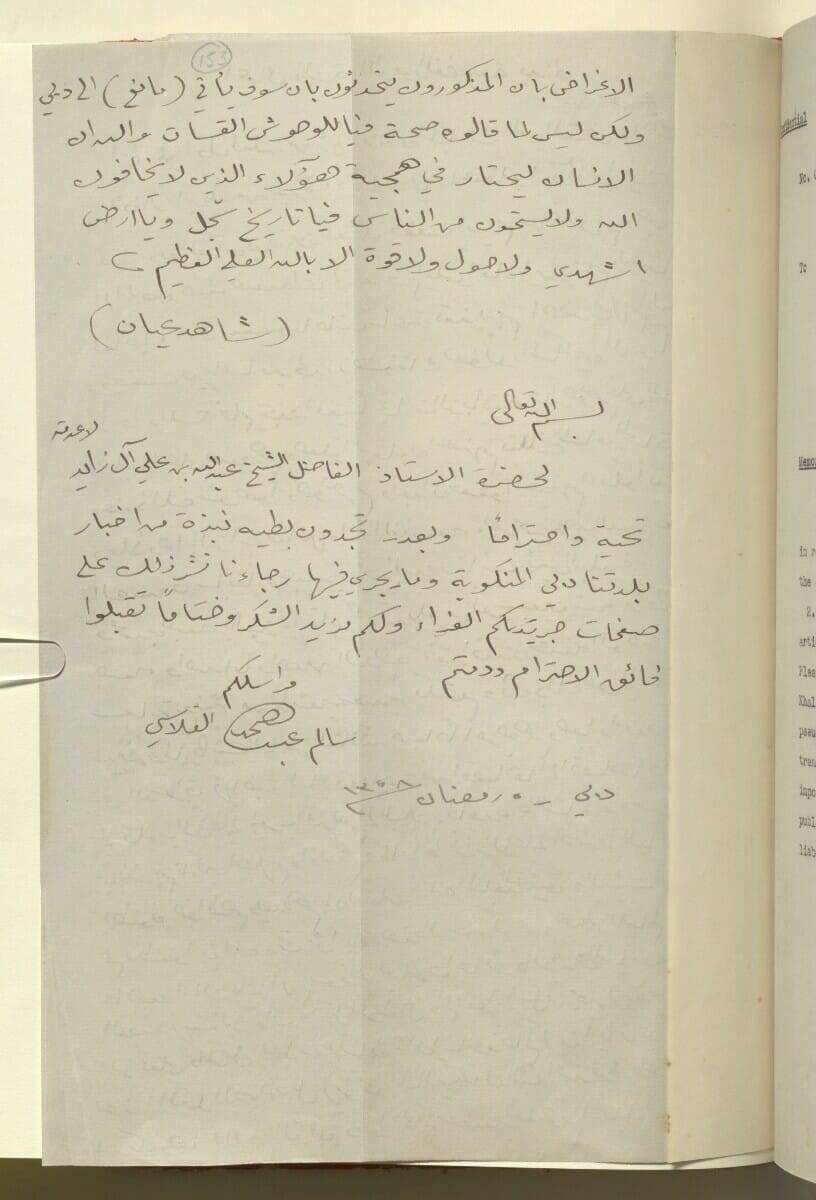 153
الاغراض بان المذكورون يتحدثون بان سوف يأتي (مانع) الى دبي
ولكن ليس لما قالوه صحة فيا للوحوش القسات والله ان
الانسان ليحتار في همجية هؤلاء الذين لا يخافون
الله ولا يستحون من الناس فيا تاريخ سجل ويا ارض
اشهدي ولا حول ولا قوة الا بالله العلي العظيم
(شاهد عيان)
بسم الله تعالى
لحضرة الاستاذ الفاضل الشيخ عبدالله بن علي آل زايد
لا عدمته
تحية واحتراماً وبعد تجدون بطيه نبذة من اخبار
بلدتنا دبي المنكوبة وما يجري فيها رجاءنا نشر ذلك على
صفحات جريدتكم الغراء ولكم مزيد الشكر وختاماً تقبلوا
فائق الاحترام ودمتم
مراسلكم
سالم عبد الفلاسي
دبي - ٥ رمضان ١٣٥٨
No.
To
in r
the
2.
arti
Plea
Khal
pseu
tran
impo
publ
liab